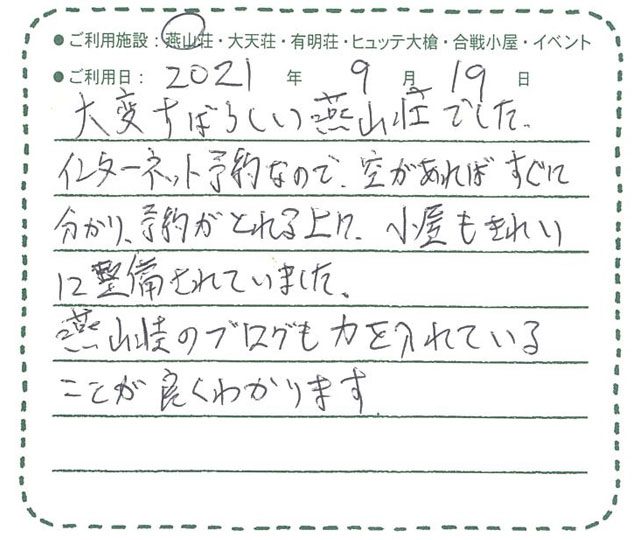 ● ご利用施設：燕山荘・大天荘・有明荘・ヒュッテ大槍・合戦小屋・イベント
● ご利用日： 2021 年 9 月 19 日
大変すばらしい燕山荘でした。
インターネット予約なので、空があればすぐに
分かり、予約がとれる上に、小屋もきれい
に整備されていました。
燕山荘のブログも力を入れている
ことが良くわかります。